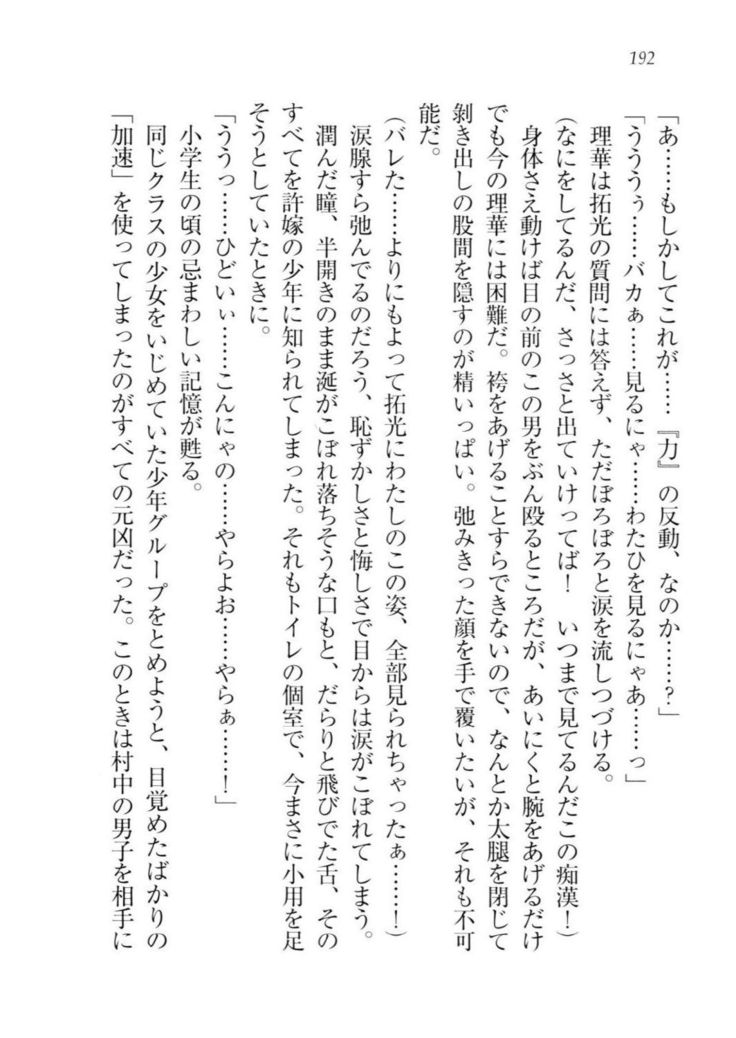 192
「あ……もしかしてこれが……『力』の反動、なのか……？」
「うううぅ……バカぁ……見るにゃ……わたひを見るにゃあ……っ」
理華は拓光の質問には答えず、ただぼろぼろと涙を流しつづける。
（なにをしてるんだ、さっさと出ていけってば！　いつまで見てるんだこの痴漢！）
身体さえ動けば目の前のこの男をぶん殴るところだが、あいにくと腕をあげるだけ
でも今の理華には困難だ。袴をあげることすらできないので、なんとか太腿を閉じて
剥き出しの股間を隠すのが精いっぱい。弛みきった顔を手で覆いたいが、それも不可
能だ。
（バレた……よりにもよって拓光にわたしのこの姿、全部見られちゃったぁ……！）
涙腺すら弛んでるのだろう、恥ずかしさと悔しさで目からは涙がこぼれてしまう。
潤んだ瞳、半開きのまま涎がこぼれ落ちそうな口もと、だらりと飛びでた舌、その
すべてを許嫁の少年に知られてしまった。それもトイレの個室で、今まさに小用を足
そうとしていたときに。
「ううっ……ひどいぃ……こんにゃの……やらよお……やらぁ……！」
小学生の頃の忌まわしい記憶が甦る。
同じクラスの少女をいじめていた少年グループをとめようと、目覚めたばかりの
「加速」を使ってしまったのがすべての元凶だった。このときは村中の男子を相手に